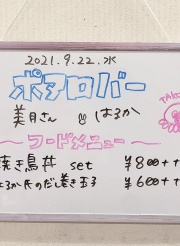 2021.9.22.水
ポテロバー
美月さん はるか
フードメニュー
TAKO
焼き鳥丼 set ¥800++
はるか氏のだし巻き玉子 ¥600++